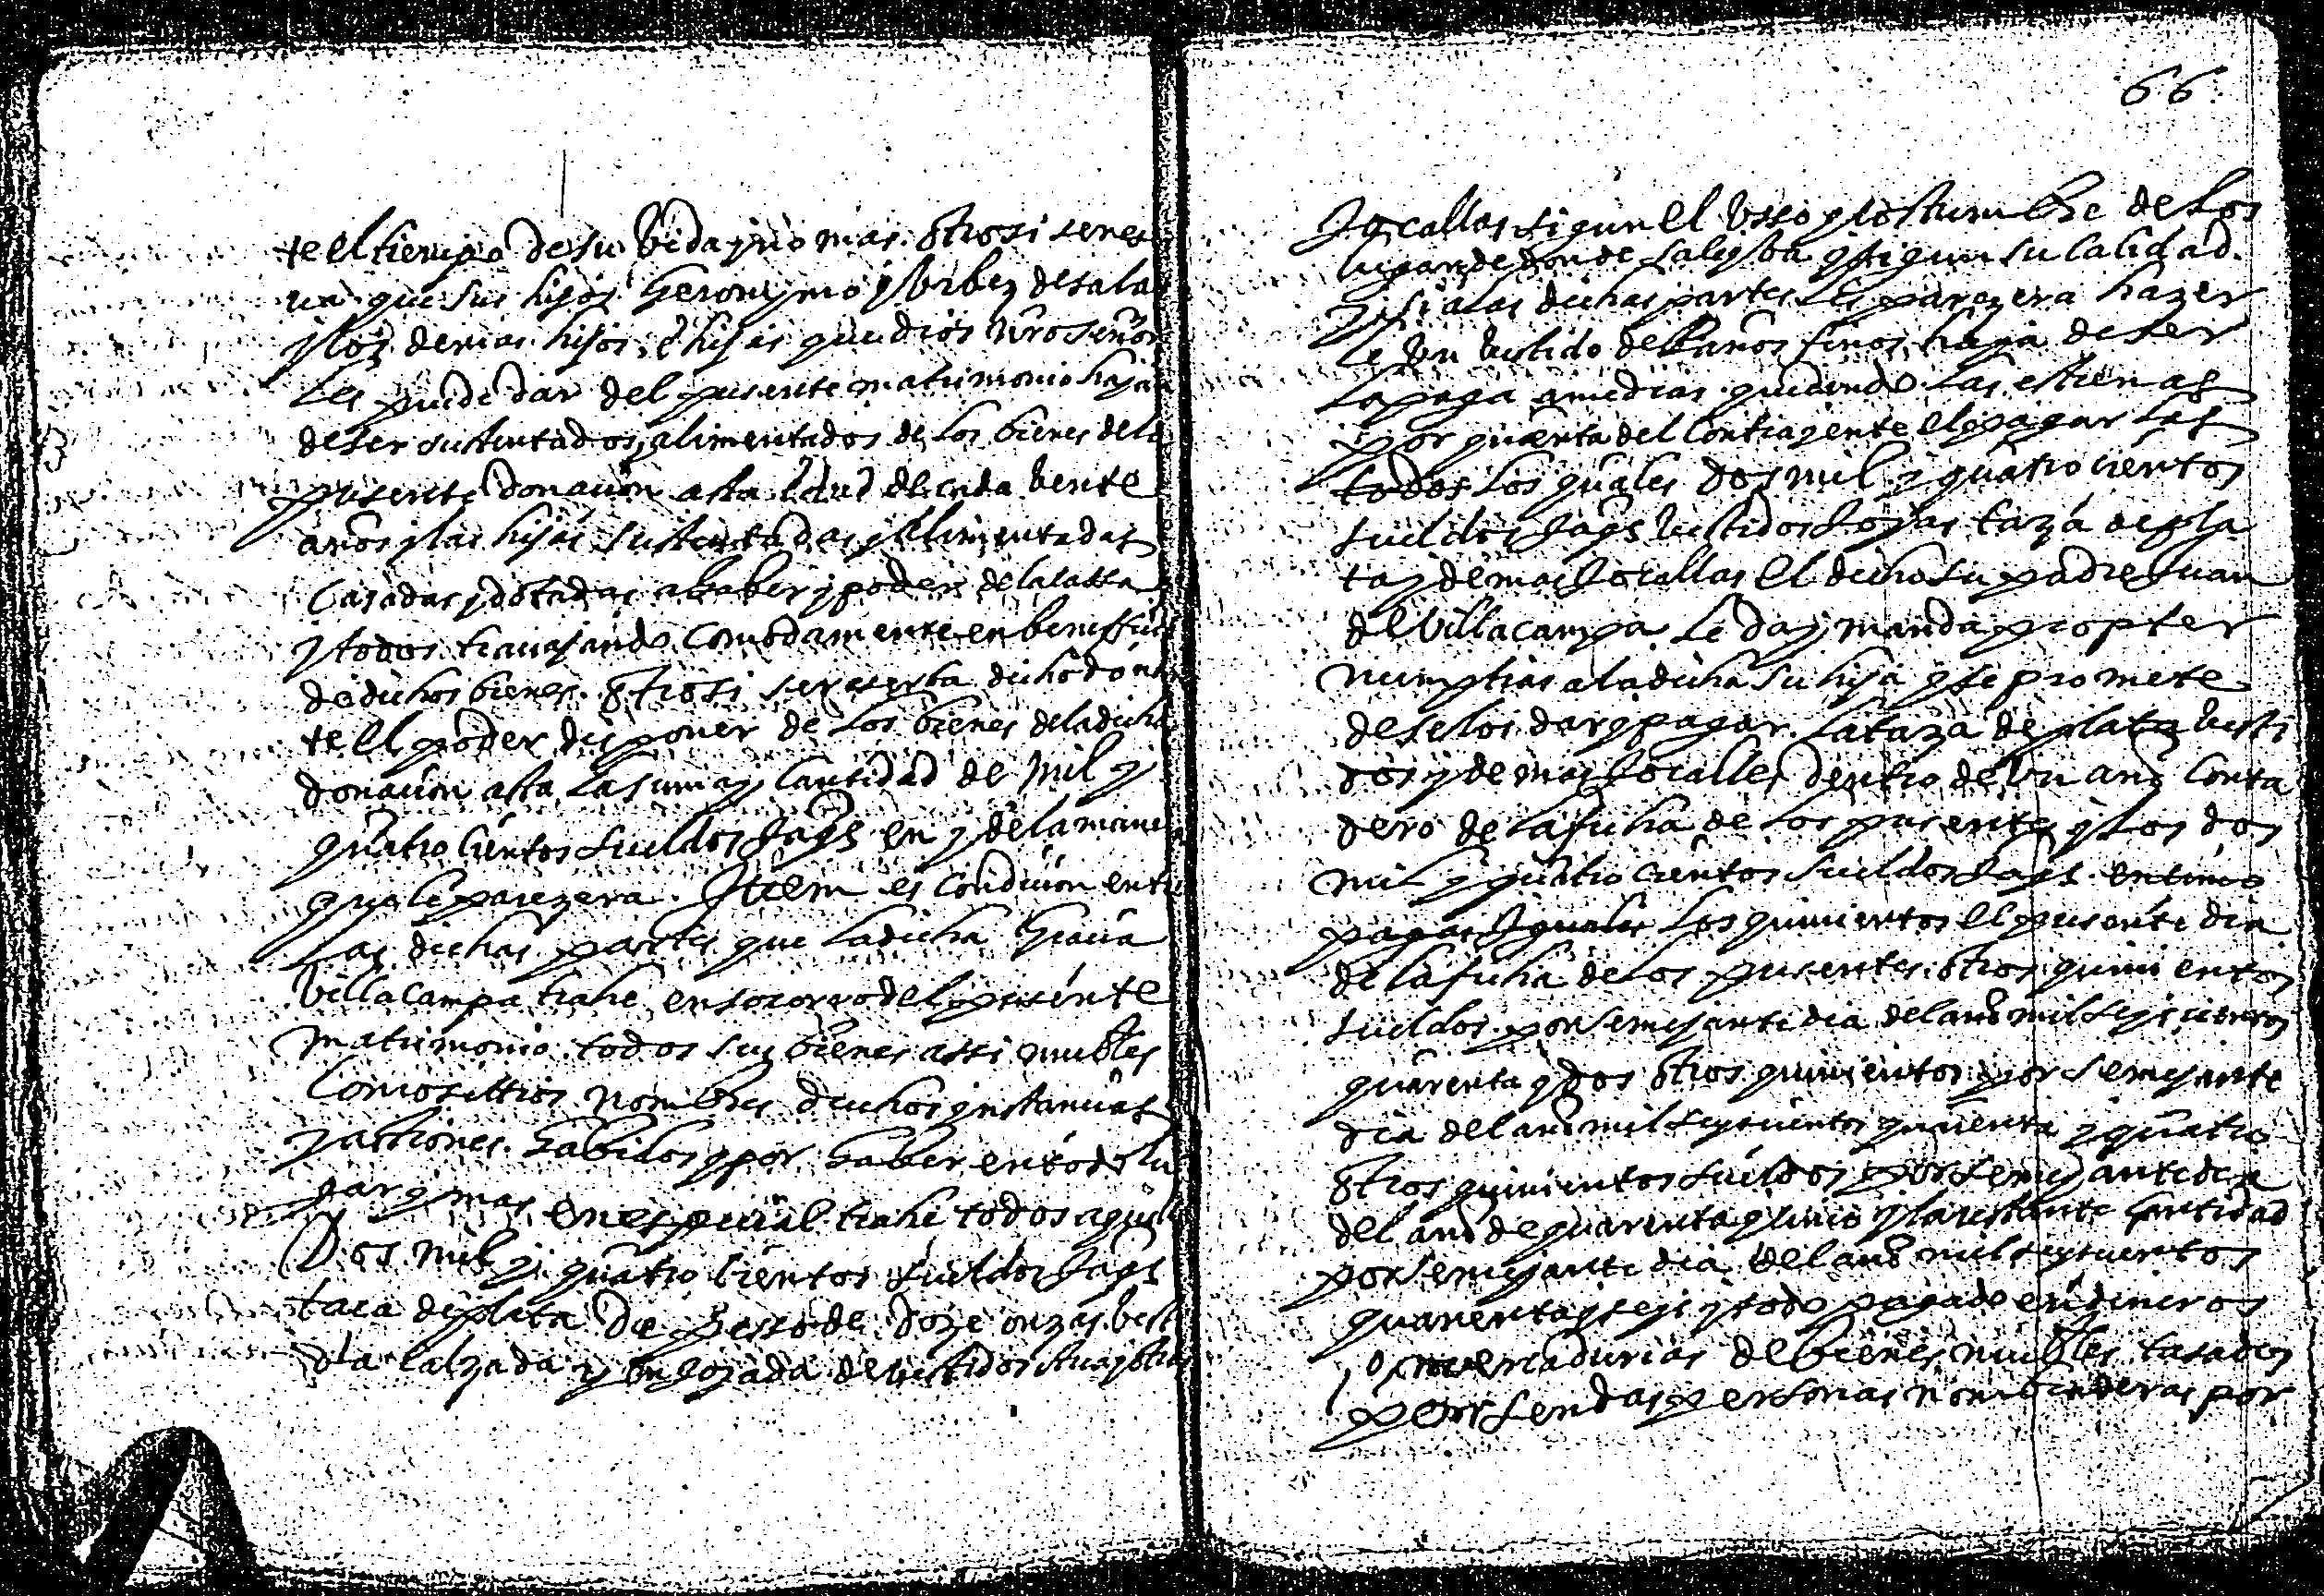 te el tiempo de su bida y no mas. Otrosi reres
ua que sus hijos Geronymo y Urbez de sala
y los demas hijos, e hijas que dios nro señor
les puede dar del presente matrimonio hayan
de ser sustentados, alimentados de los bienes de la
presente donacion asta edad de cada bente
años y las hijas sustentadas y alimentadas
casadas y dotadas al haber y poder de la cassa
y todos trauajando comodamente en beneficio
de dichos bienes. Otrosi se reserba dicho donan
te el poder disponer de los bienes de la dicha
donacion asta la suma y cantidad de mil y
quatro cientos sueldos Jaqs en y de la mane
que le parezera. Item es condicion entre
las dichas partes que la dicha Gracia
Villacampa trahe en socorro del presente
matrimonio todos sus bienes assi muebles
como sittios nombres drechos ynstancias
y actiones. habidos y por haber en todo lu
gar y mas en especial trahe todos aquellos
Dos mil y quatro cientos sueldos Jaqs
taca de plata de pesso de doze onzas best
da calzada y en jozada de bestidos
66
Jocallas sigun el usso y costumbre de los
lugar de donde sale y ba y sigun su calidad.
y si a las dichas partes les parezera hazer
le un bestido de paños finos haya de ser
la paga a medias quedando las estrenas
por quenta del contrayente el pagar las
todos los quales dos mil y quatro cientos
sueldos Jaqs bestidos Joyas taza de pla
ta y demas Jocallas el dicho su padre Juan
de Villacampa le da y manda propter
numptias a la dicha su hija y se promete
de se los dar y pagar. la taza de plata besti
dos y demas Jocalles dentro de un año conta
dero de la fecha de los presentes y los dos
mil y quatro cientos sueldos Jaqs. en cinco
pagas Iguales los quinientos el presente dia
de la fecha de los presentes otros quinientos
sueldos por semejante dia del año mil seyscientos
quarenta y dos otros quinientos por semejante
dia del año mil seyscientos quarenta y quatro
otros quinientos sueldos por semejante dia
del año de quarenta y cinco y la restante cantidad
por semejante dia del año mil seyscientos
quarenta y seys y todo pagado en dineros
o mercadurias de bienes muebles tasados
por sendas personas nombraderas por